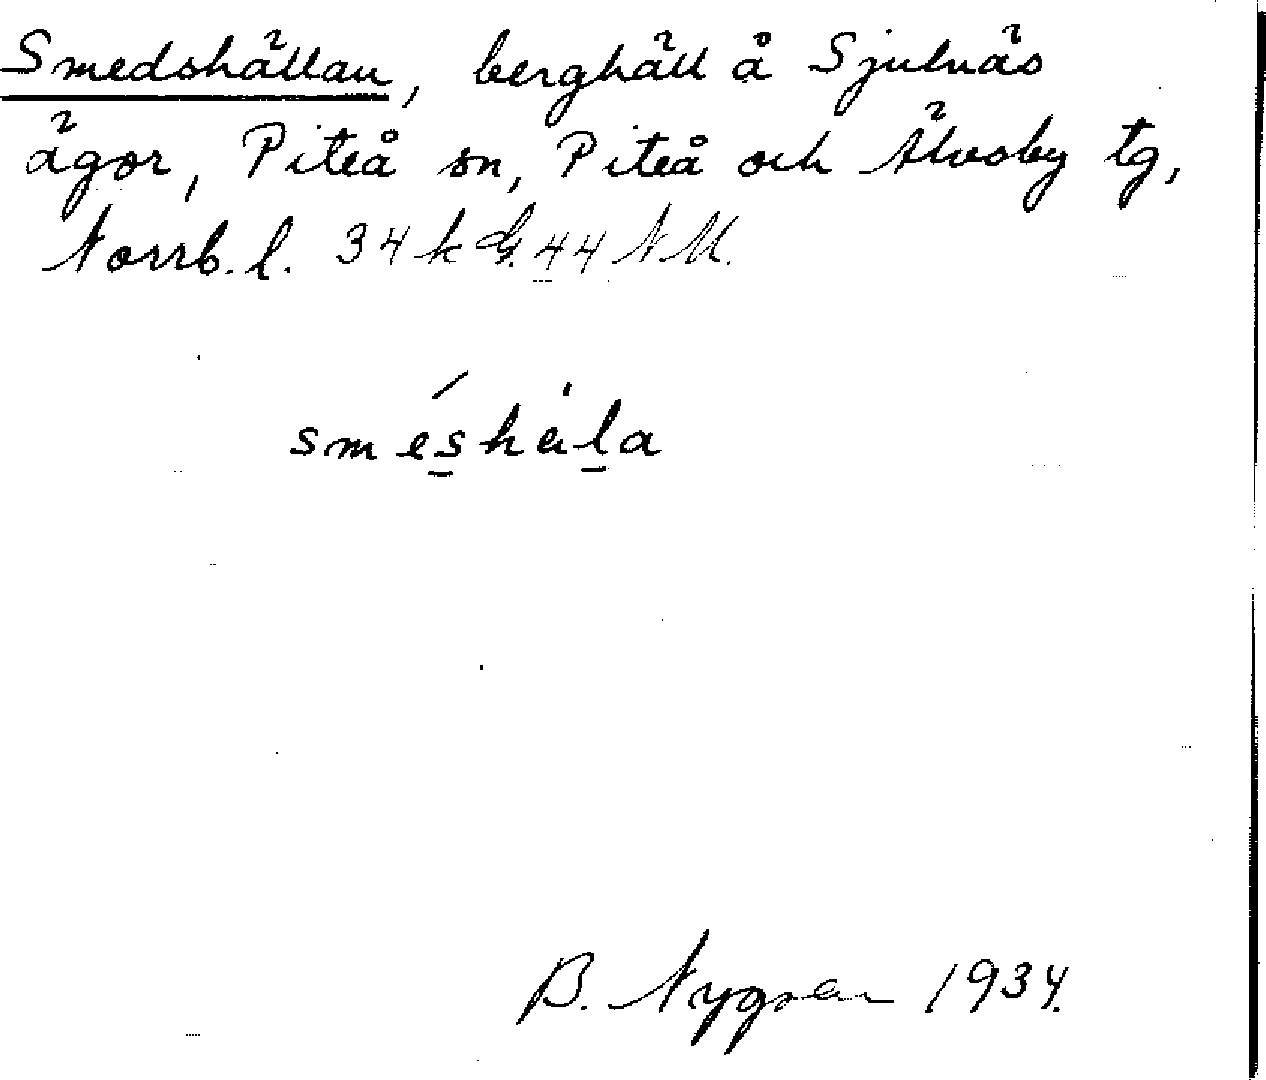 Smedshällan, berghäll å Sjulnäs
ägor, Piteå sn, Piteå och Älvsby tg,
Norrb. l. 34 k 44 N M.
sméshäla
B. Nygren 1934.